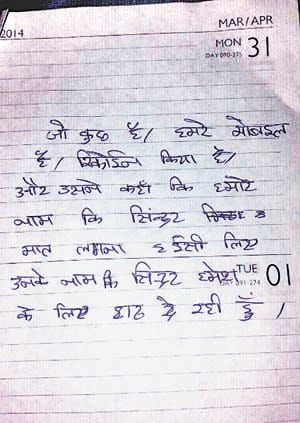 2014
MAR/APR
MON 31
DAY 090-275
जो कुछ है/ हमारे मोबाइल
है/ रिकोर्डिन किया है/
और उसने कहाँ कि हमारे
नाम कि सिंन्दुर
मात लगाना इसी लिए
उनके नाम कि सिंदुर हमेशा TUE 01
DAY 091-274
के लिए हाठ दे रही हुँ /